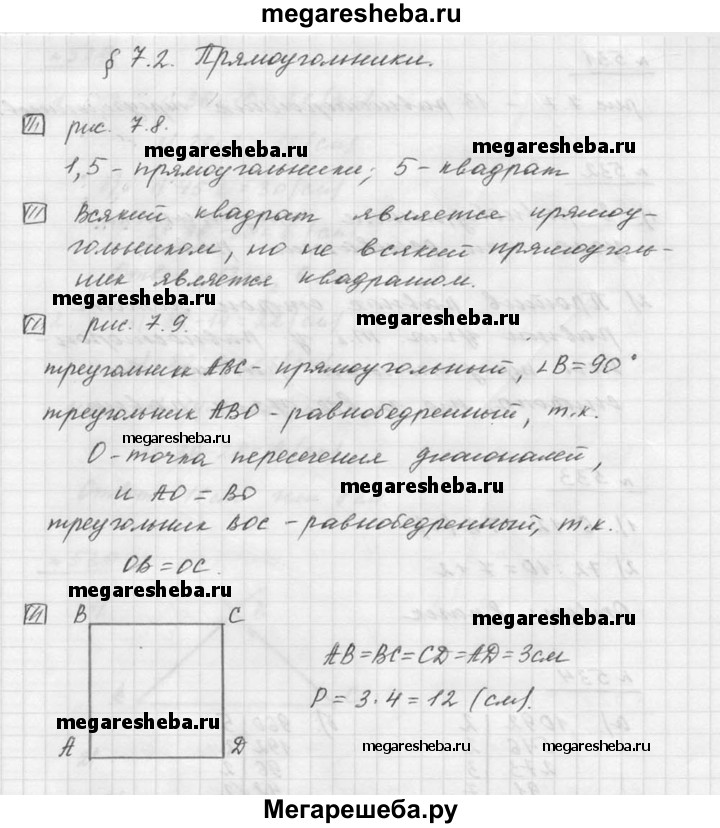 megaresheba.ru
§ 7.2. Прямоугольники.
рис. 7.8.
megaresheba.ru
megaresheba.ru
1,5 - прямоугольники; 5 - квадрат
Всякий квадрат является прямоу-
гольником, но не всякий прямоуголь-
ник является квадратом.
megaresheba.ru
рис. 7.9.
megaresheba.ru
треугольник ABC - прямоугольный, ∠B=90°
треугольник ABO - равнобедренный, т.к.
megaresheba.ru
O - точка пересечения диагоналей,
и AO = BO
megaresheba.ru
треугольник BOC - равнобедренный, т.к.
OB = OC.
megaresheba.ru
megaresheba.ru
B C
AB=BC=CD=AD=3см
P = 3·4 = 12 (см).
megaresheba.ru
A D
megaresheba.ru
megaresheba.ru
Мегарешеба.ру